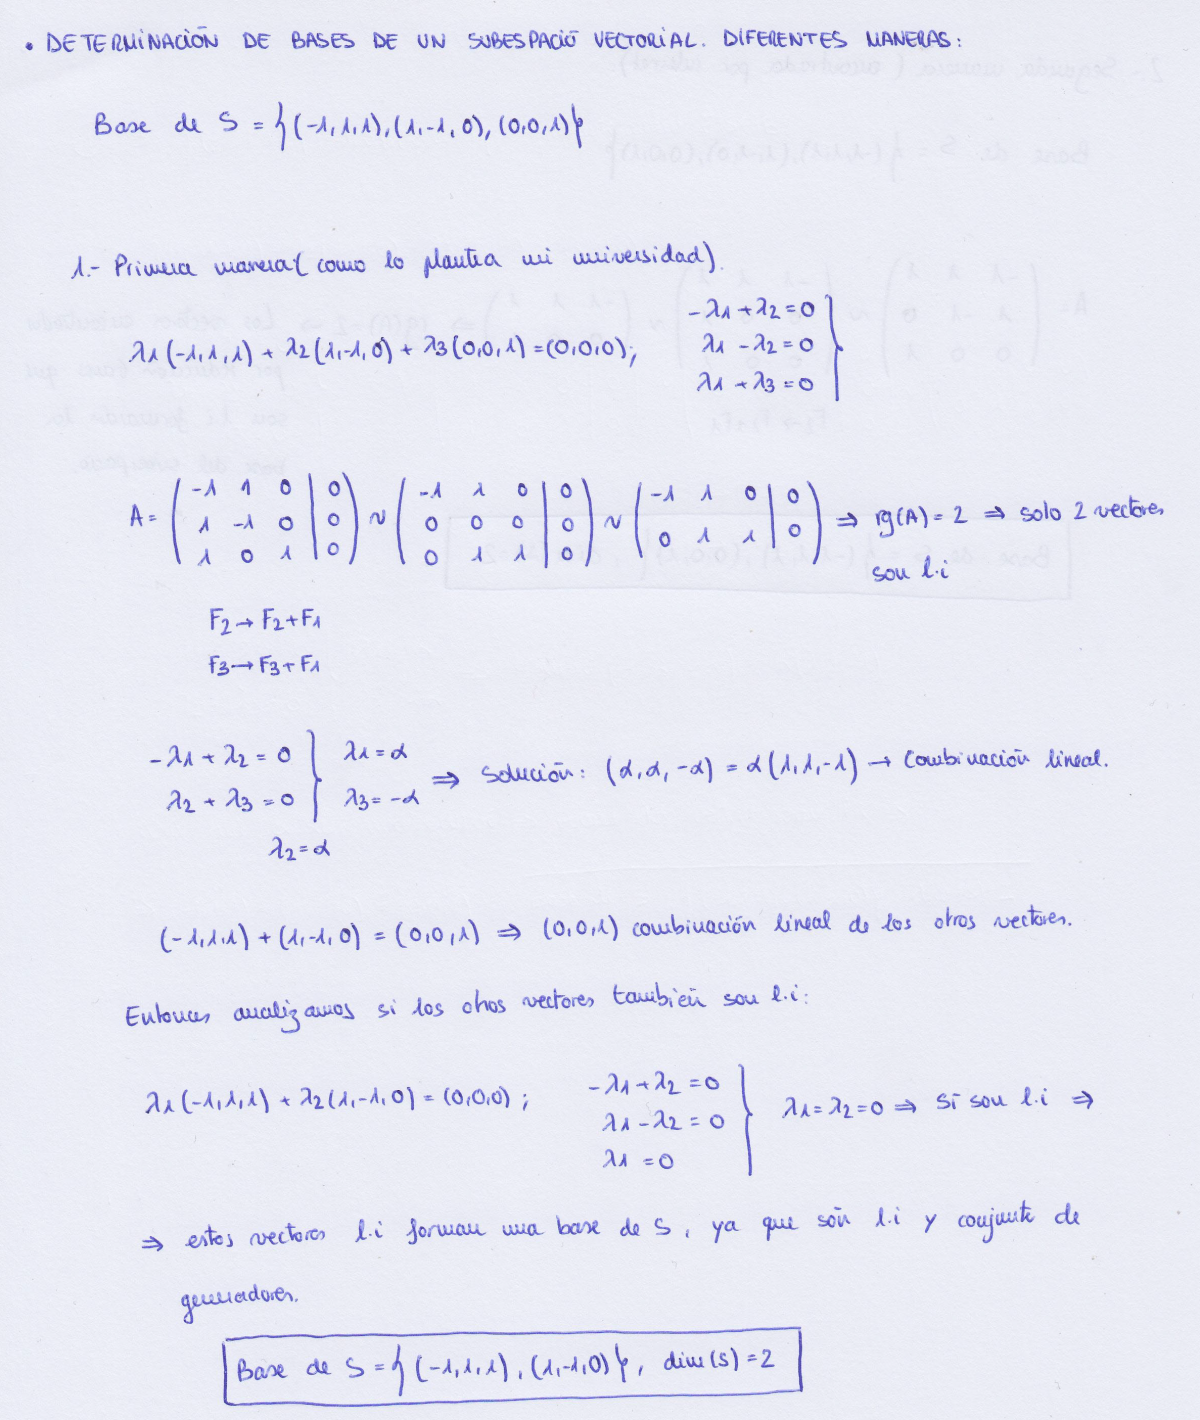 • DETERMINACIÓN DE BASES DE UN SUBESPACIO VECTORIAL. DIFERENTES MANERAS:
Base de S = {(-1,1,1),(1,-1,0),(0,0,1)}
1.- Primera manera (como lo plantea mi universidad).
λ1(-1,1,1) + λ2(1,-1,0) + λ3(0,0,1) = (0,0,0);
-λ1 + λ2 = 0
λ1 - λ2 = 0
λ1 + λ3 = 0
A = ( -1 1 0 | 0 ) ~ ( -1 1 0 | 0 ) ~ ( -1 1 0 | 0 ) ⇒ rg(A) = 2 ⇒ solo 2 vectores
1 -1 0 | 0    0 0 0 | 0    0 1 1 | 0
1 0 1 | 0    0 1 1 | 0
son l.i
F2 → F2 + F1
F3 → F3 + F1
-λ1 + λ2 = 0 } λ1 = α
λ2 + λ3 = 0 } λ3 = -α
λ2 = α
⇒ Solución: (α, α, -α) = α(1,1,-1) → Combinación lineal.
(-1,1,1) + (1,-1,0) = (0,0,1) ⇒ (0,0,1) combinación lineal de los otros vectores.
Entonces analizamos si los otros vectores también son l.i:
λ1(-1,1,1) + λ2(1,-1,0) = (0,0,0);
-λ1 + λ2 = 0
λ1 - λ2 = 0
λ1 = 0
λ1 = λ2 = 0 ⇒ Sí son l.i ⇒
⇒ estos vectores l.i forman una base de S, ya que son l.i y conjunto de
generadores.
Base de S = {(-1,1,1), (1,-1,0)}, dim(S) = 2